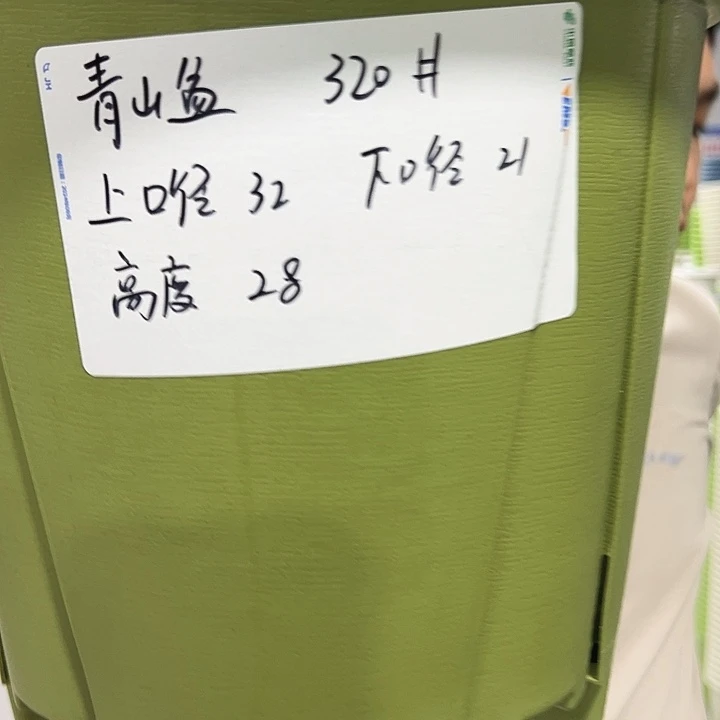 青山盆 320#
上口径 32 下口径 21
高度 28